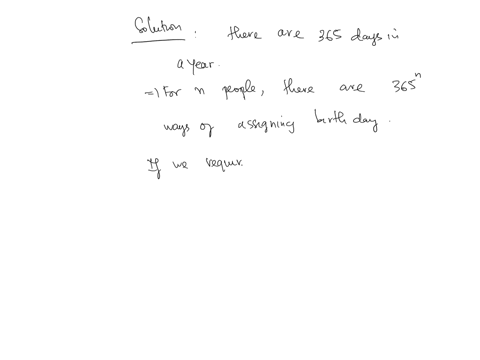 Solution : there are 365 days in
a year.
⇒ For n people, there are 365ⁿ
ways of assigning birth day.
If we requir